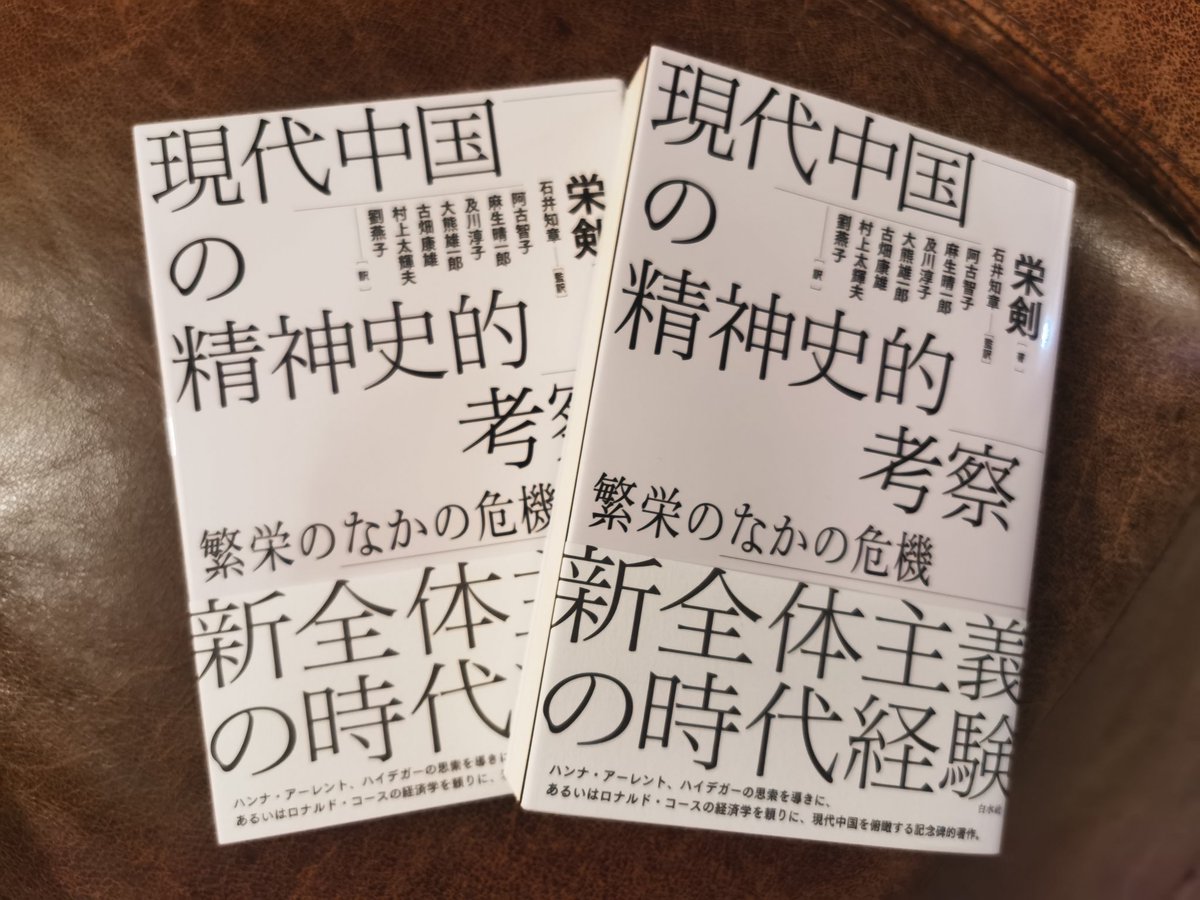 現代中国
の
精神史的
考察
繁栄のなかの危機
栄剣
石井知章
[監訳]
阿古智子
麻生晴一郎
及川淳子
大熊雄一郎
古畑康雄
村上太輝夫
劉燕子
[訳]
新全体主
の時代
ハンナ・アーレント、ハイデガーの思索を導きに
あるいはロナルド・コースの経済学を頼りに、
現代中国
の
精神史的
考察
繁栄のなかの危機
栄剣
[著]
石井知章
[監訳]
阿古智子
麻生晴一郎
及川淳子
大熊雄一郎
古畑康雄
村上太輝夫
劉燕子
[訳]
新全体主義
の時代経験
ハンナ・アーレント、ハイデガーの思索を導きに、
あるいはロナルド・コースの経済学を頼りに、現代中国を俯瞰する記念碑的著作。
白水社